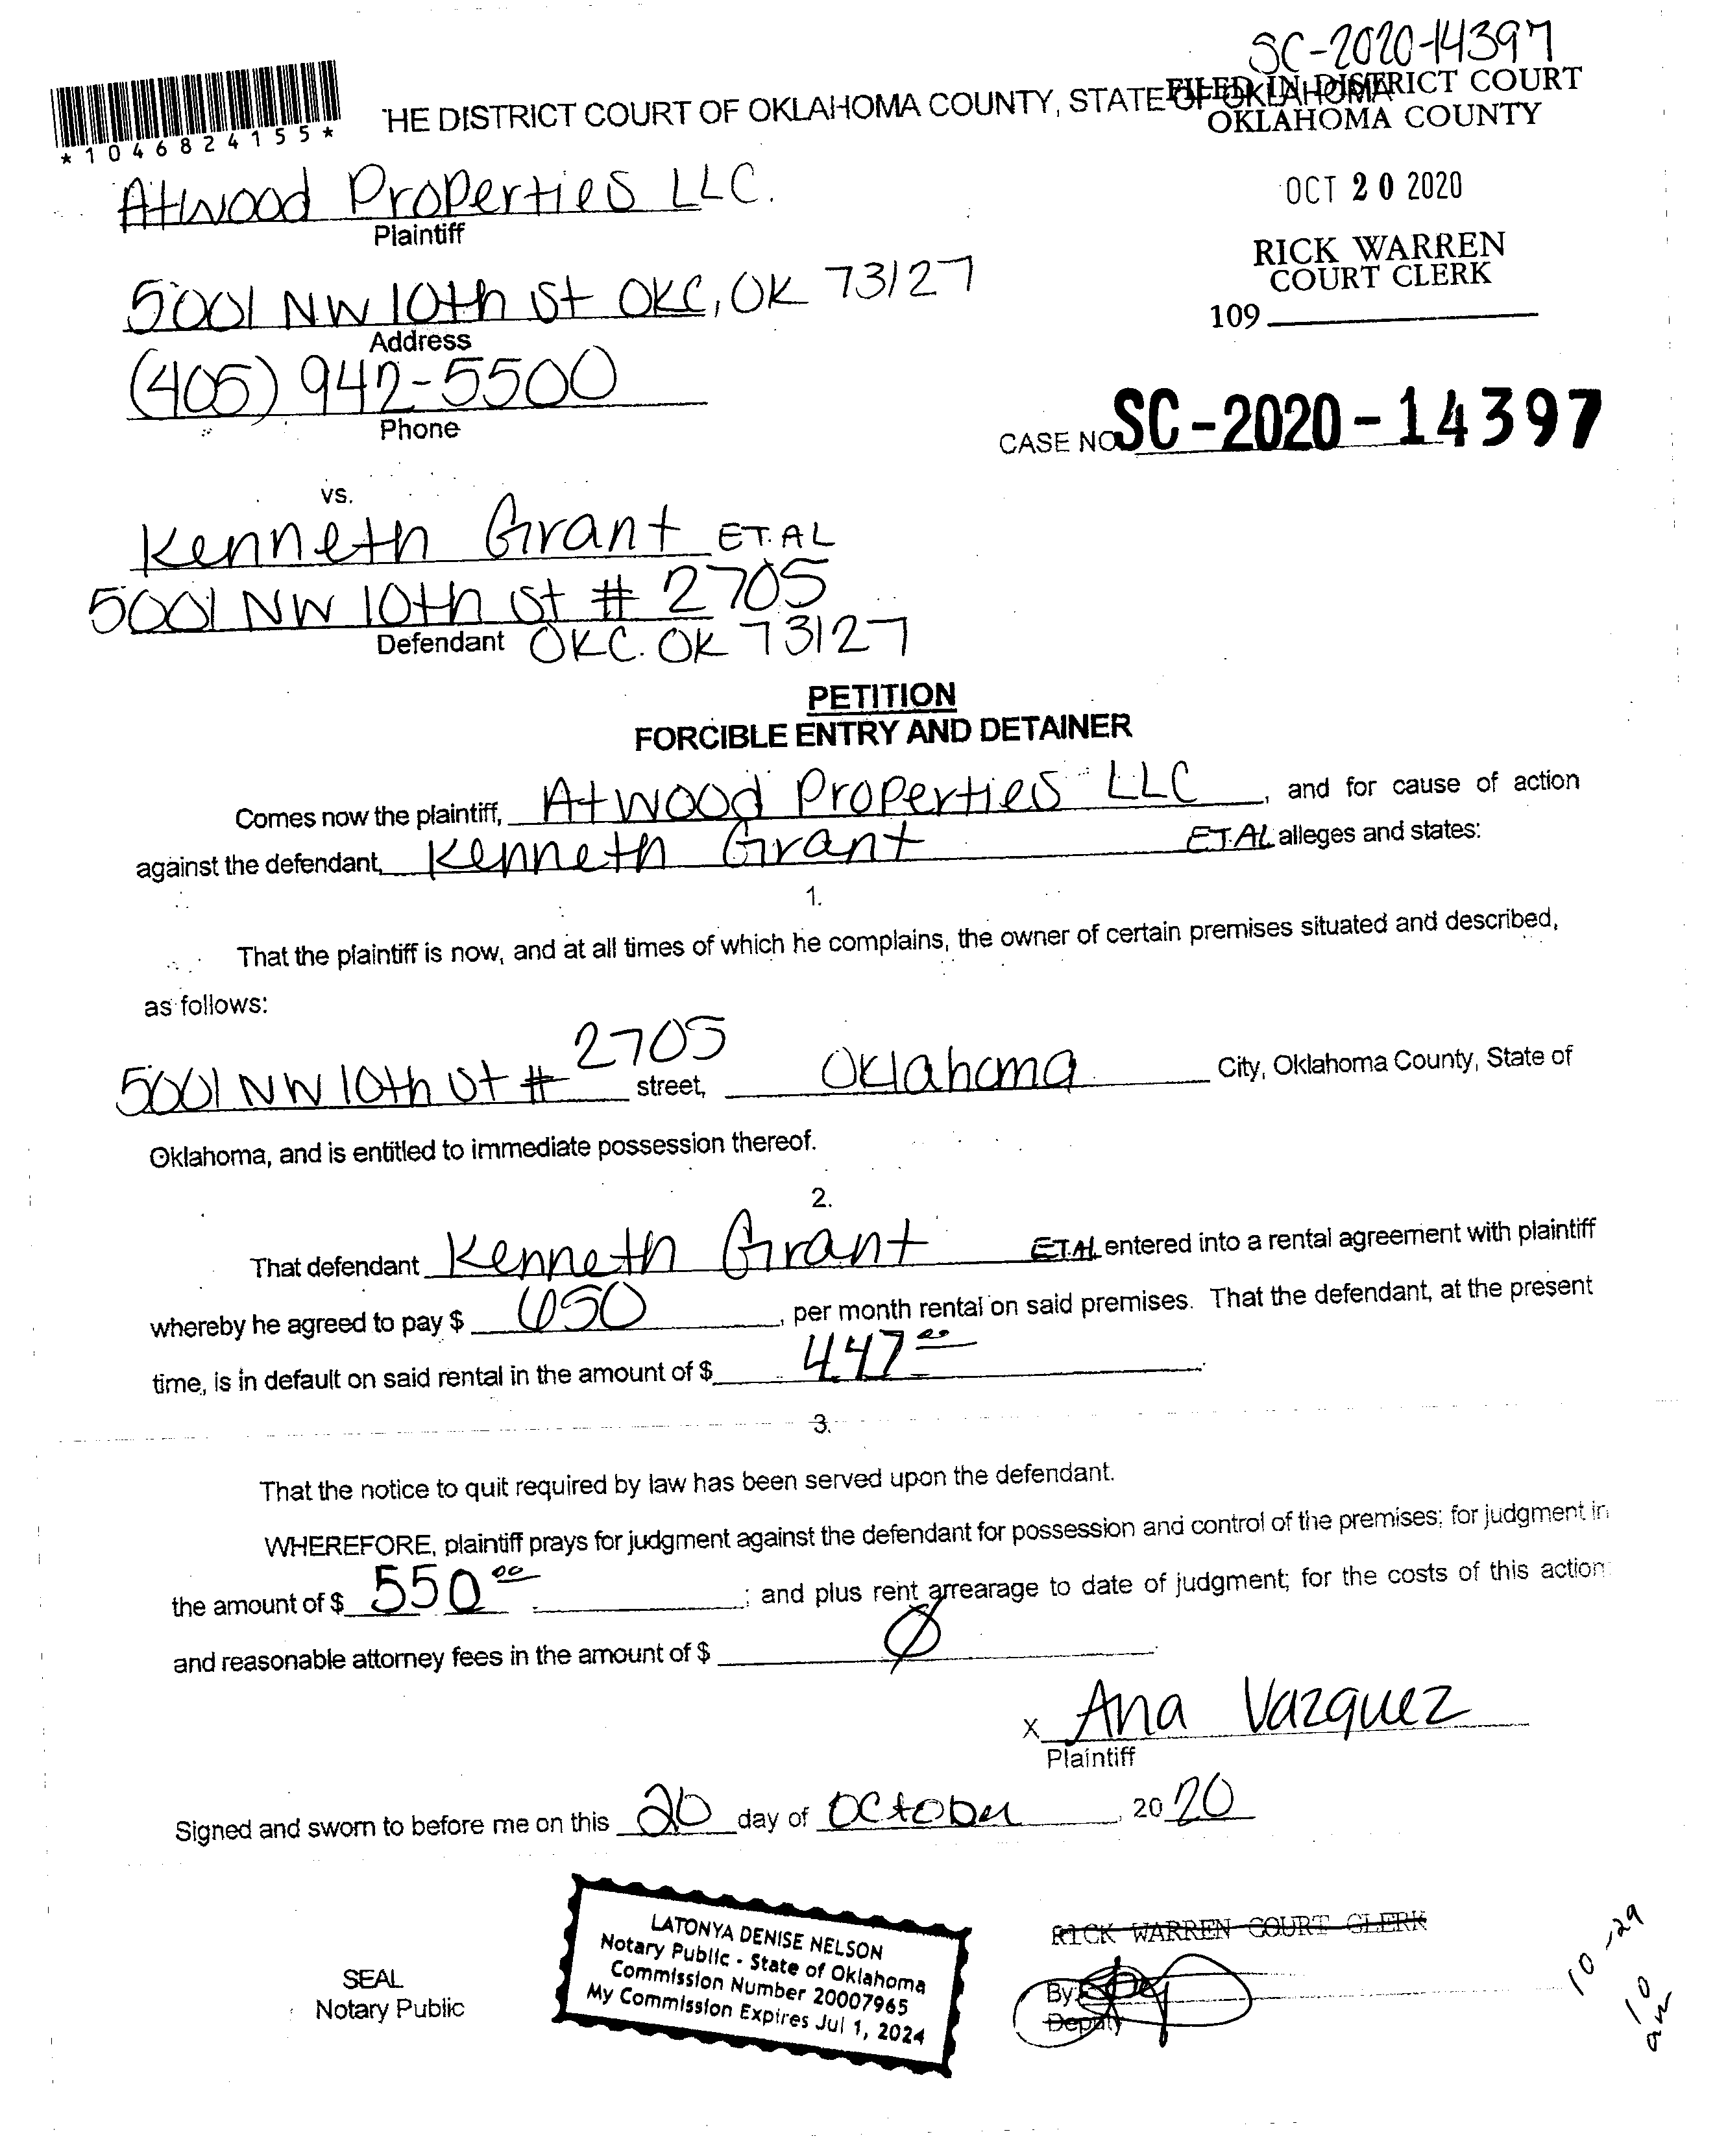 SC-2020-14397
FILED IN DISTRICT COURT
OKLAHOMA COUNTY
*1046824155*
HE DISTRICT COURT OF OKLAHOMA COUNTY, STATE OF OKLAHOMA
OCT 20 2020
RICK WARREN
COURT CLERK
109
Atwood Properties LLC.
Plaintiff
5001 NW 10th St OKC, OK 73127
Address
(405) 942-5500
Phone
CASE NO SC-2020-14397
vs.
Kenneth Grant ET.AL
5001 NW 10th St # 2705
Defendant OKC. OK 73127
PETITION
FORCIBLE ENTRY AND DETAINER
Comes now the plaintiff, Atwood Properties LLC, and for cause of action
against the defendant, Kenneth Grant ET.AL alleges and states:
1.
That the plaintiff is now, and at all times of which he complains, the owner of certain premises situated and described,
as follows:
5001 NW 10th St # 2705 street, Oklahoma City, Oklahoma County, State of
Oklahoma, and is entitled to immediate possession thereof.
2.
That defendant Kenneth Grant ET.AL entered into a rental agreement with plaintiff
whereby he agreed to pay $ 650, per month rental on said premises. That the defendant, at the present
time, is in default on said rental in the amount of $ 447.00.
3.
That the notice to quit required by law has been served upon the defendant.
WHEREFORE, plaintiff prays for judgment against the defendant for possession and control of the premises; for judgment in
the amount of $ 550.00; and plus rent arrearage to date of judgment; for the costs of this action
and reasonable attorney fees in the amount of $ Ø.
x Ana Vazquez
Plaintiff
Signed and sworn to before me on this 20 day of October, 2020
LATONYA DENISE NELSON
Notary Public - State of Oklahoma
Commission Number 20007965
My Commission Expires Jul 1, 2024
SEAL
Notary Public
RICK WARREN COURT CLERK
By:
Deputy
10-29
10
am